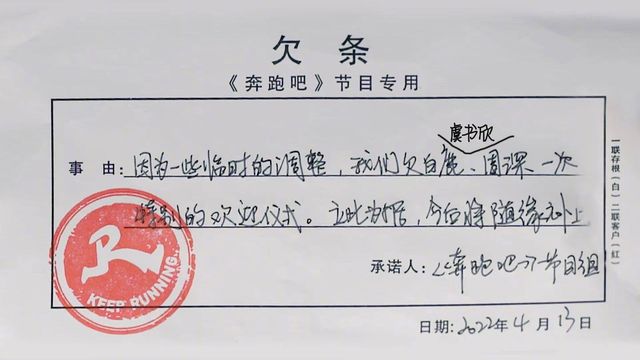 欠条
《奔跑吧》节目专用
虞书欣
事 由：因为一些临时的调整，我们欠白鹿、周深一次
特别的欢迎仪式。立此为据，今后将随缘补上
承诺人：《奔跑吧》节目组
日期：2022年4月13日
一联存根（白）二联客户（红）
R
KEEP RUNNING